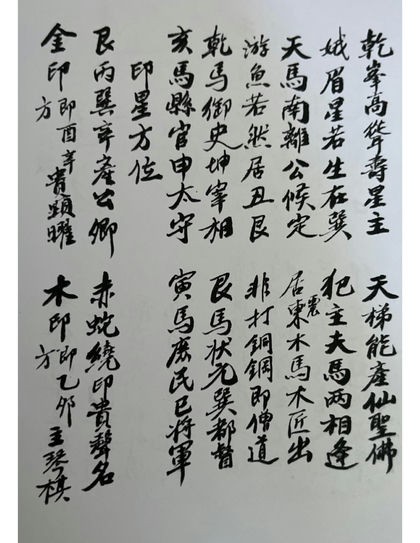 乾峯高聳壽星主 天梯能產仙聖佛
娥眉星若生在巽 犯主夫馬兩相逢
天馬南離公候定 居東震木馬木匠出
游魚若然居丑艮 非打銅鋼即僧道
乾馬御史坤宰相 艮馬狀元巽都督
亥馬縣官申太守 寅馬庶民巳將軍
印星方位
艮丙巽辛產公卿 赤蛇繞印貴聲名
金印即酉辛方貴顯耀 木印即乙卯方主琴棋